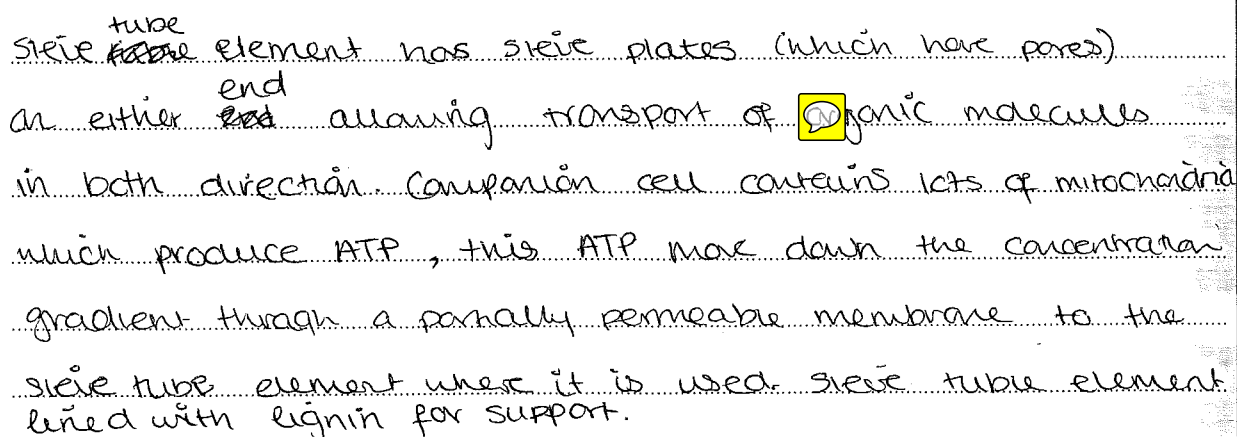 sieve tube element has sieve plates (which have pores)
on either end allowing transport of organic molecules
in both direction. Companion cell contains lots of mitochondria
which produce ATP, this ATP move down the concentration
gradient through a partially permeable membrane to the
sieve tube element where it is used. sieve tube element
lined with lignin for support.